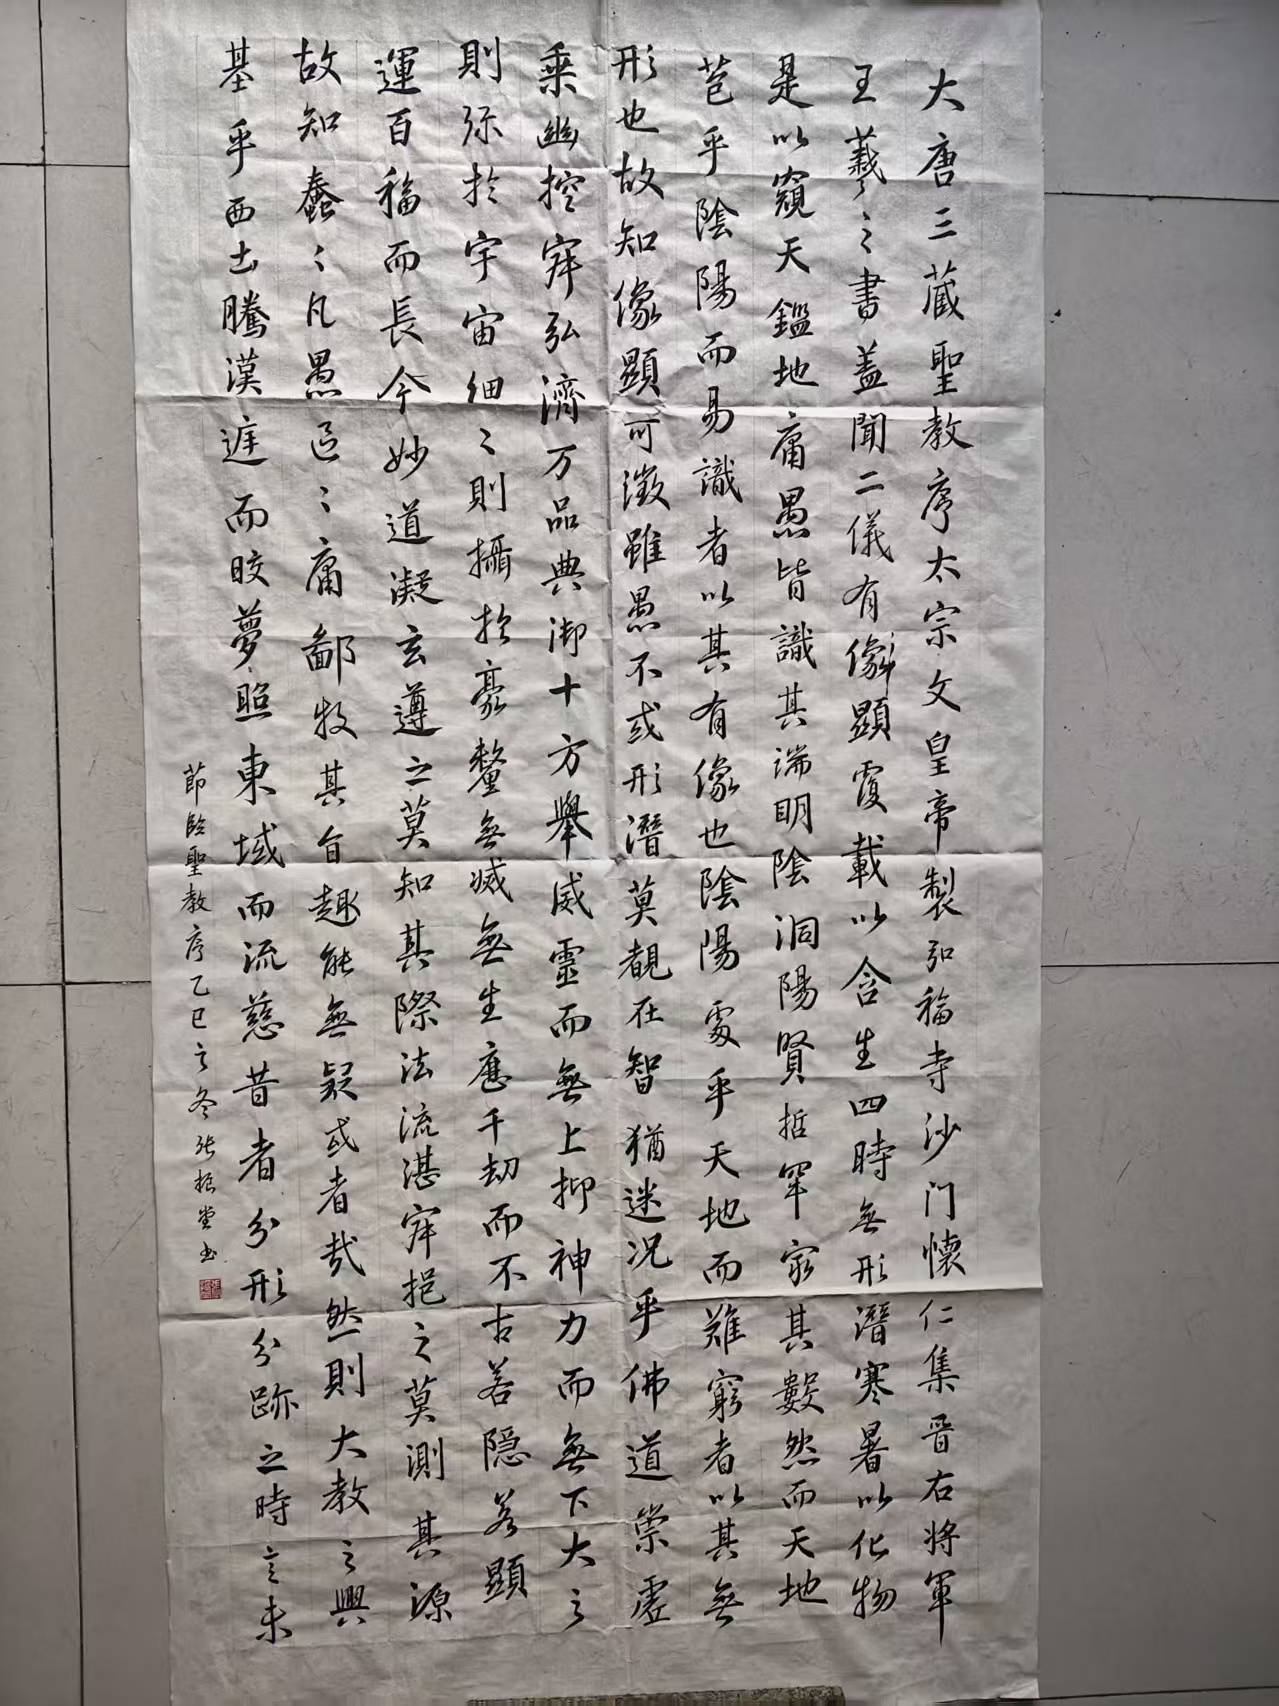 大唐三藏聖教序太宗文皇帝製弘福寺沙门懷仁集晉右將軍
王羲之書盖聞二儀有像顯覆載以含生四時無形潛寒暑以化物
是以窺天鑑地庸愚皆識其端明陰洞陽賢哲罕窮其數然而天地
苞乎陰陽而易識者以其有像也陰陽處乎天地而難窮者以其無
形也故知像顯可徵雖愚不或形潛莫覩在智猶迷况乎佛道崇虛
乘幽控寂弘濟万品典御十方舉威靈而無上抑神力而無下大之
則弥於宇宙細之則攝於豪釐無滅無生應千劫而不古若隐若顯
運百福而長今妙道凝玄遵之莫知其際法流湛寂挹之莫測其源
故知蠢々凡愚區々庸鄙投其旨趣能無疑或者哉然則大教之興
基乎西土騰漢庭而皎夢照東域而流慈昔者分形分跡之時言未
節臨聖教序乙巳之冬张振堂书